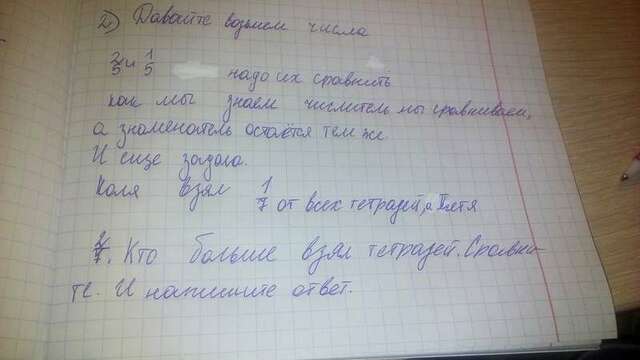 2) Давайте возьмем числа
2/5 и 1/5 надо их сравнить
как мы знаем числитель мы сравниваем,
а знаменатель остаётся тем же.
И еще задача.
Коля взял 1/7 от всех тетразей, а Петя
2/7. Кто больше взял тетразей. Сравни
те. И напишите ответ.